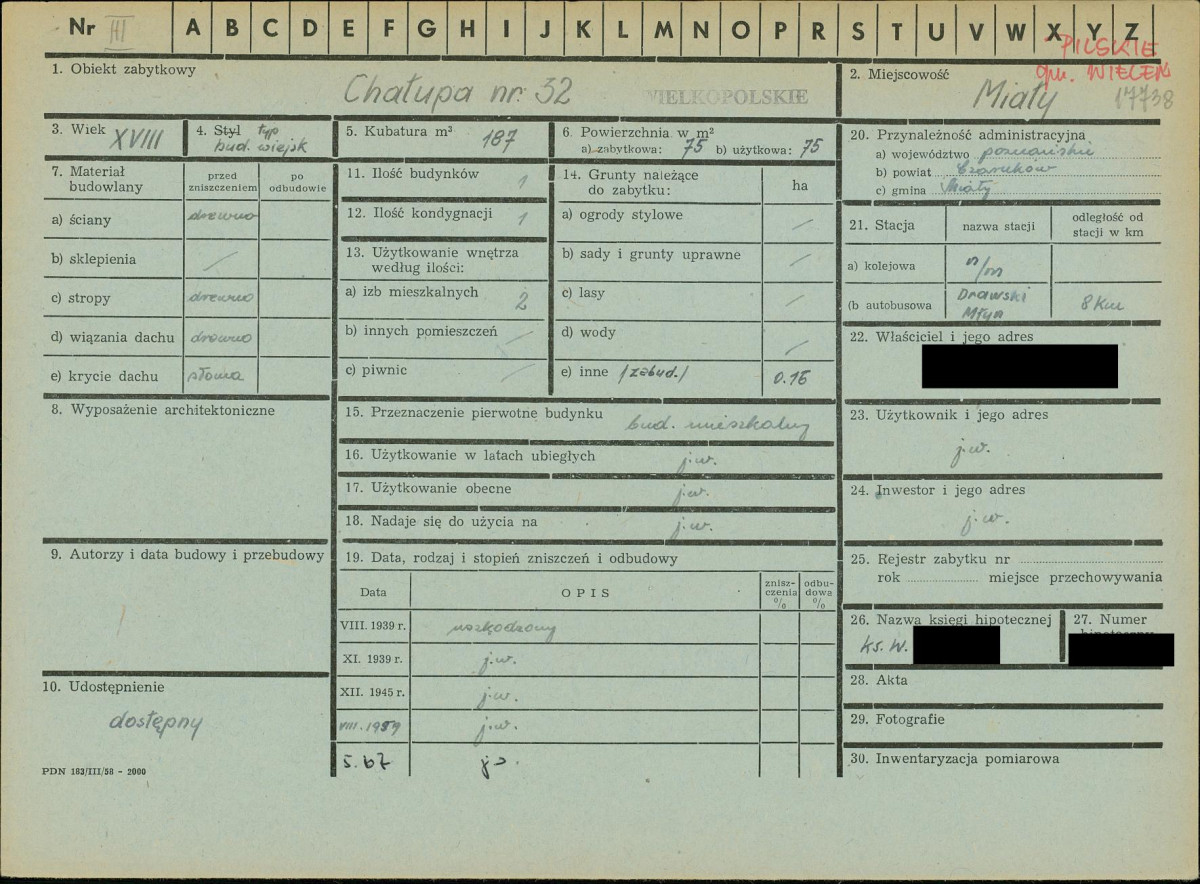 Nr III A B C D E F G H I J K L M N O P R S T U V W X Y Z
PILSKIE
gm. WIELEŃ
1. Obiekt zabytkowy
Chałupa nr. 32
WIELKOPOLSKIE
2. Miejscowość
Miały
17738
3. Wiek XVIII
4. Styl typ
bud. wiejsk
5. Kubatura m³ 187
6. Powierzchnia w m²
a) zabytkowa: 75 b) użytkowa: 75
7. Materiał budowlany
przed zniszczeniem
po odbudowie
a) ściany drewno
b) sklepienia /
c) stropy drewno
d) wiązania dachu drewno
e) krycie dachu słoma
8. Wyposażenie architektoniczne
9. Autorzy i data budowy i przebudowy
10. Udostępnienie
dostępny
PDN 183/III/58 - 2000
11. Ilość budynków 1
12. Ilość kondygnacji 1
13. Użytkowanie wnętrza
według ilości:
a) izb mieszkalnych 2
b) innych pomieszczeń /
c) piwnic /
14. Grunty należące
do zabytku: ha
a) ogrody stylowe /
b) sady i grunty uprawne /
c) lasy /
d) wody /
e) inne /zabud./ 0.16
15. Przeznaczenie pierwotne budynku
bud. mieszkalny
16. Użytkowanie w latach ubiegłych j.w.
17. Użytkowanie obecne j.w.
18. Nadaje się do użycia na j.w.
19. Data, rodzaj i stopień zniszczeń i odbudowy
Data OPIS znisz-czenia % odbu-dowa %
VIII. 1939 r. uszkodzony
XI. 1939 r. j.w.
XII. 1945 r. j.w.
VIII. 1959 j.w.
5.67
20. Przynależność administracyjna
a) województwo poznańskie
b) powiat Czarnków
c) gmina Miały
21. Stacja nazwa stacji odległość od stacji w km
a) kolejowa n/m
(b autobusowa Drawski Młyn 8 Km
22. Właściciel i jego adres
23. Użytkownik i jego adres
j.w.
24. Inwestor i jego adres
j.w.
25. Rejestr zabytku nr
rok miejsce przechowywania
26. Nazwa księgi hipotecznej
Ks. W.
27. Numer
28. Akta
29. Fotografie
30. Inwentaryzacja pomiarowa